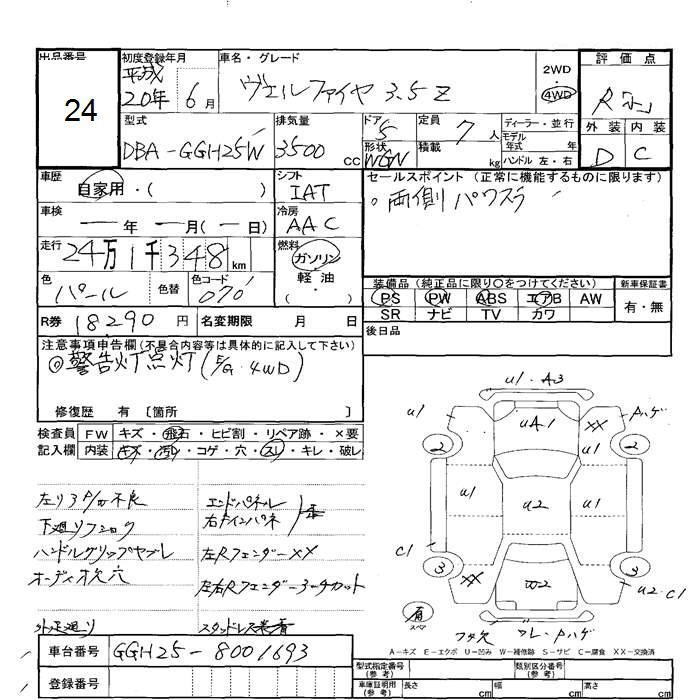 出品番号 初度登録年月 車名・グレード 評価点
24 平成20年 6月 ヴェルファイヤ 3.5Z 2WD・4WD R
型式 排気量 ドア 5 定員 7人 ディーラー・並行 外装 内装
DBA-GGH25W 3500cc 形状 WGN 積載 kg モデル年式 年 ハンドル 左・右 D C
車歴 自家用・( ) シフト IAT セールスポイント (正常に機能するものに限ります)
車検 ー年 ー月(ー日) 冷房 AAC 両側パワスラ
走行 24万1千348km 燃料 ガソリン・軽油・
色 パール 色替 色コード 070 装備品(純正品に限り〇をつけてください) 新車保証書
PS PW ABS エアB AW 有・無
R券 18290円 名変期限 月 日 SR ナビ TV カワ
注意事項申告欄(不具合内容等は具体的に記入して下さい) 後日品
◎警告灯点灯(E/G・4WD)
修復歴 有 〔箇所 〕
検査員 FW キズ・飛石・ヒビ割・リペア跡・×要
記入欄 内装 キズ・汚レ・コゲ・穴・スレ・キレ・破レ
u1・A3
u1 uA1 XX Aハゲ
2 2
u1 u2 u1
C1
3 XX W2 3 u2.C1
有 スペア
左リヤP/W不良 エンドパネル
下廻り 右
ハンドルグリップヤブレ 左Rフェンダー XX
オーディオ欠 穴 左右Rフェンダーコーナーカット
外 廻り スタッドレス装着
車台番号 GGH25-8001693
登録番号
A-キズ E-エクボ U-凹み W-補修跡 S-サビ C-腐食 XX-交換済
型式指定番号(参考) 類別区分番号(参考)
車庫証明用(参考) 長さ cm 幅 cm 高さ cm